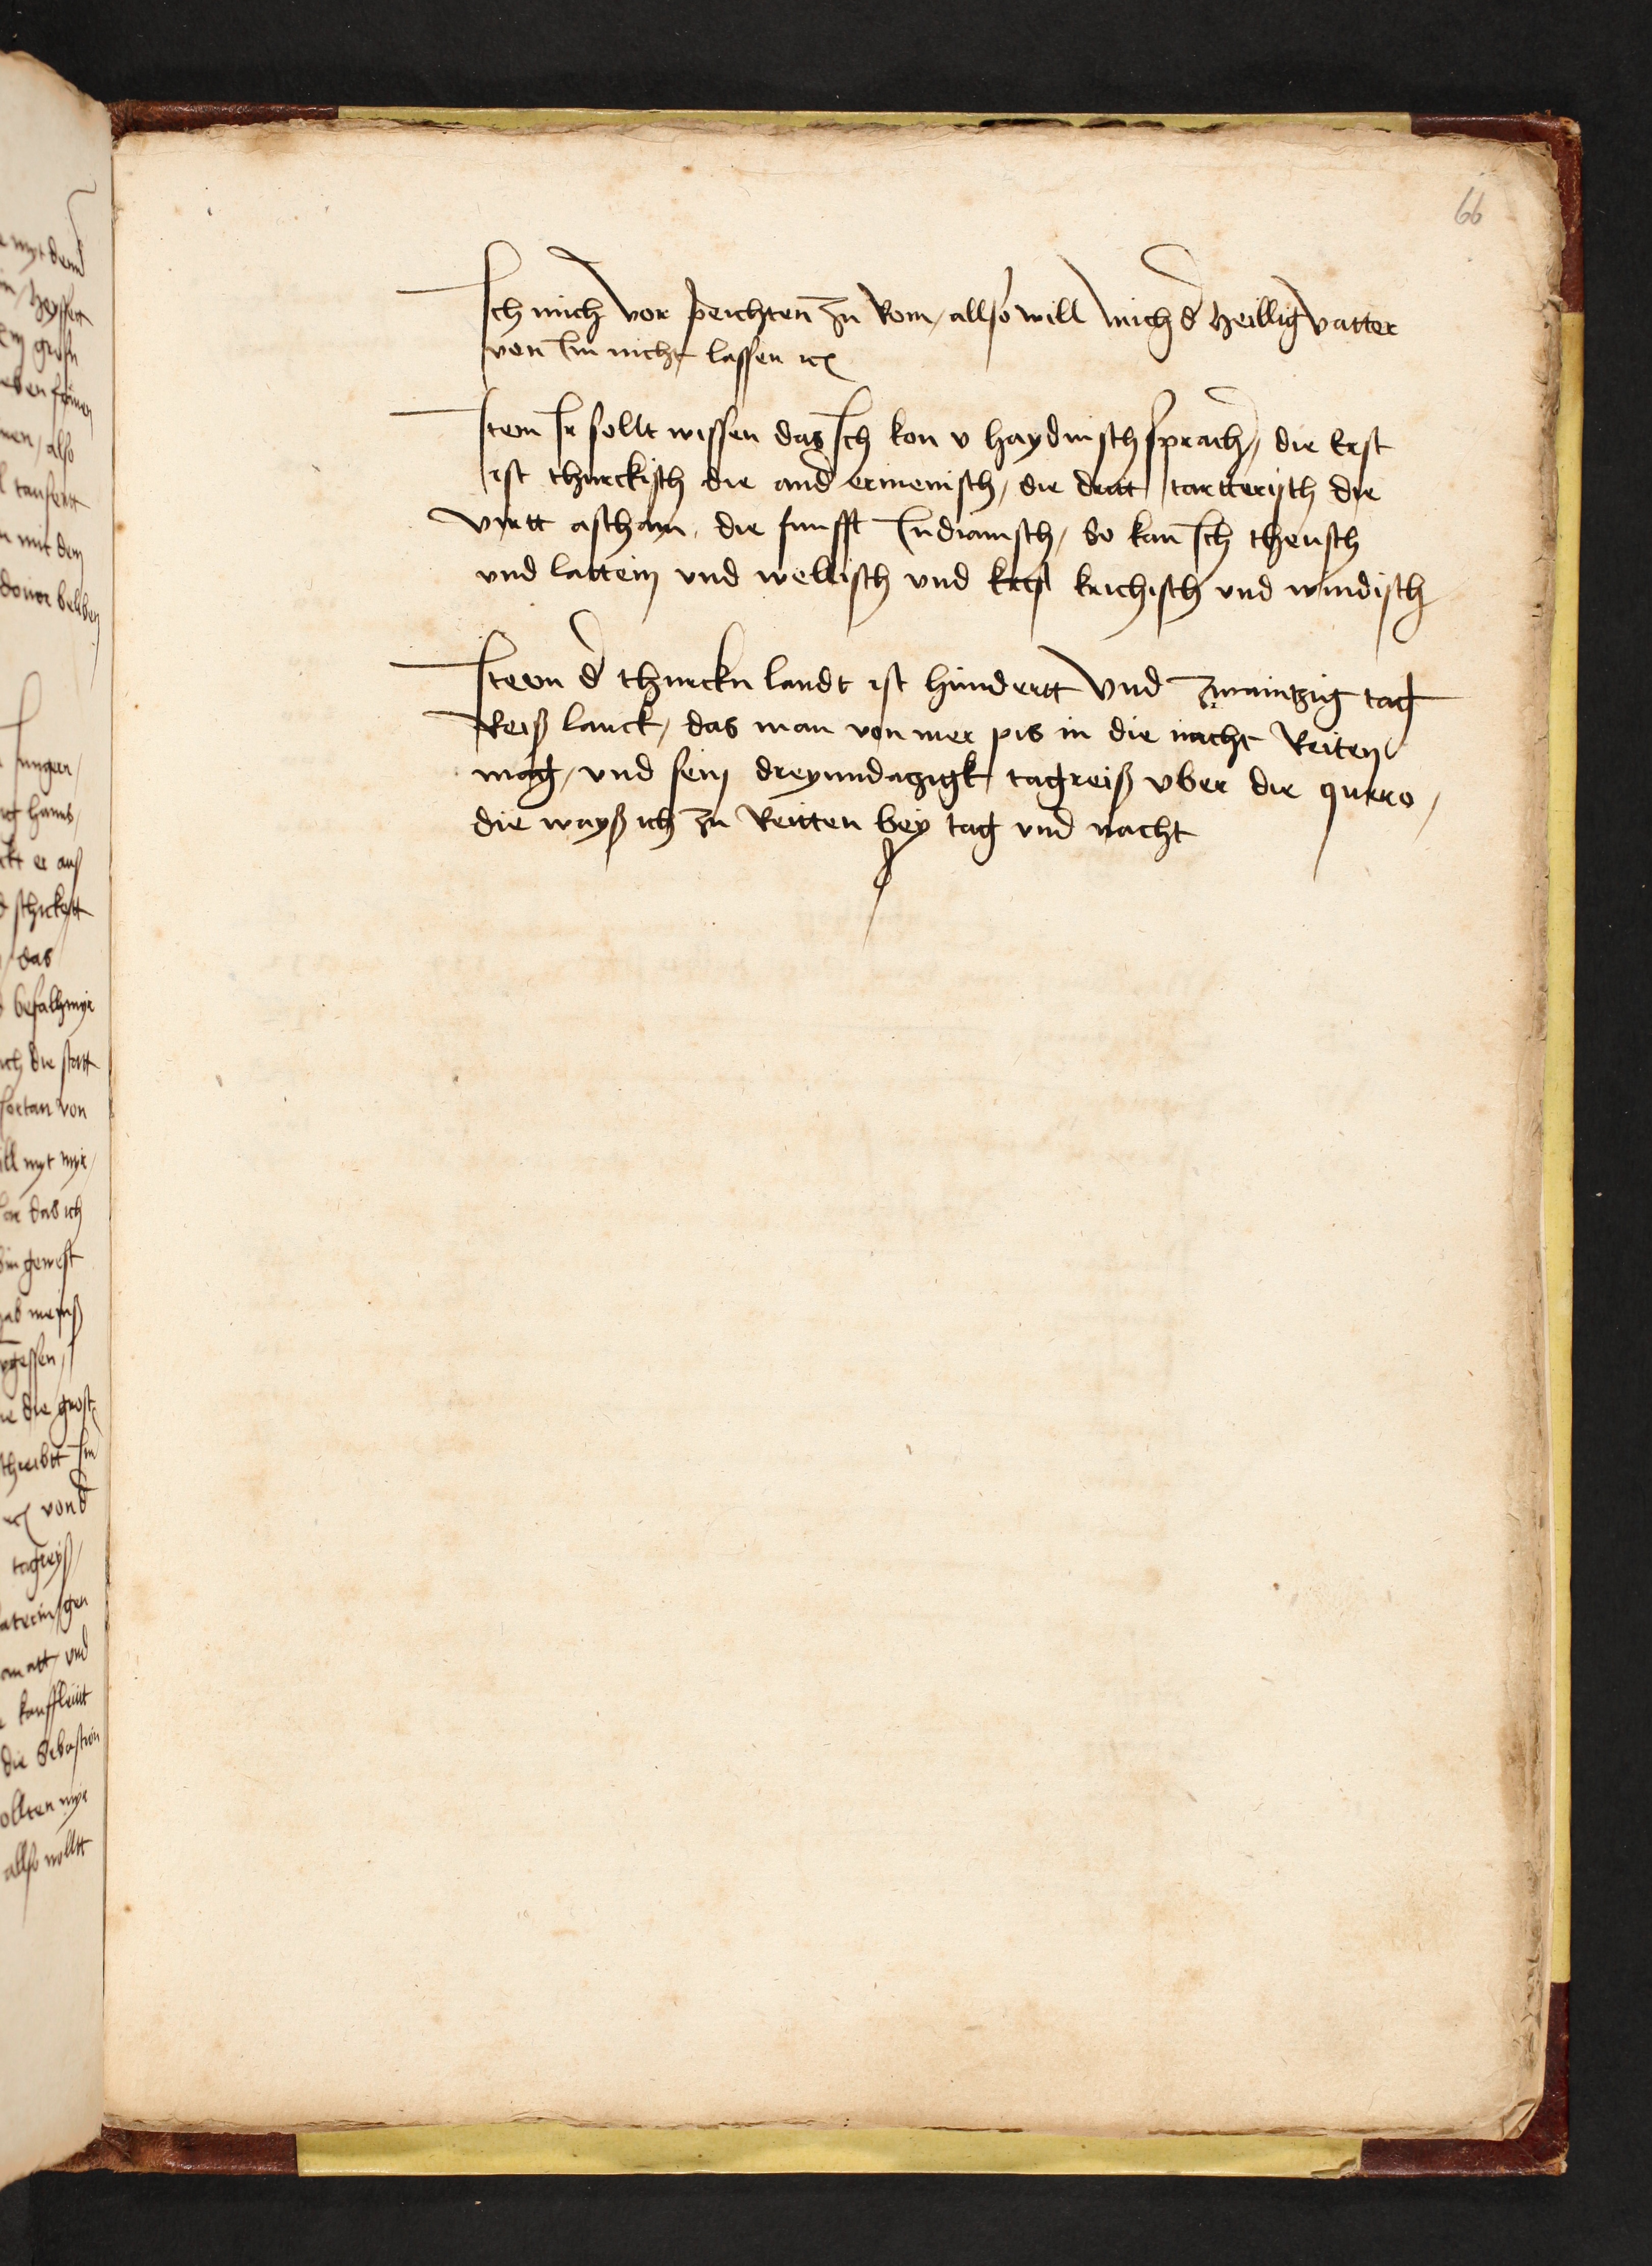 66
Ich mich vor peichten zu Rom / allso will mich d heillig vatter
von Im nicht lassen etc
Item Ir sollt wissen das Ich kon v haydnisch sprach / die Erst
ist thurckisch die and ermenisch / die dritt tartterisch die
virtt aschayn / die funfft Indianisch / So kan Ich theusch
vnd lattein vnd wellisch vnd krichisch vnd windisch
Item d thurckn landt ist hundertt vnd zwaintzig tag
Reiß lanck / das man von mer pis in die nacht Reiten
mag / vnd sein dreyundazigk tagreiß vber die quero /
die wayß ich zu Reitten bey tag vnd nacht
myt dem
groß
also
mit dem
hanns
er auß
schickett
das
befalh myr
die statt
von
myt myr
das ich
gewest
die grost
Im
vond
tagreyß
vnd
kauffleutt
die Sebastion
ollten myr
allso wolltt